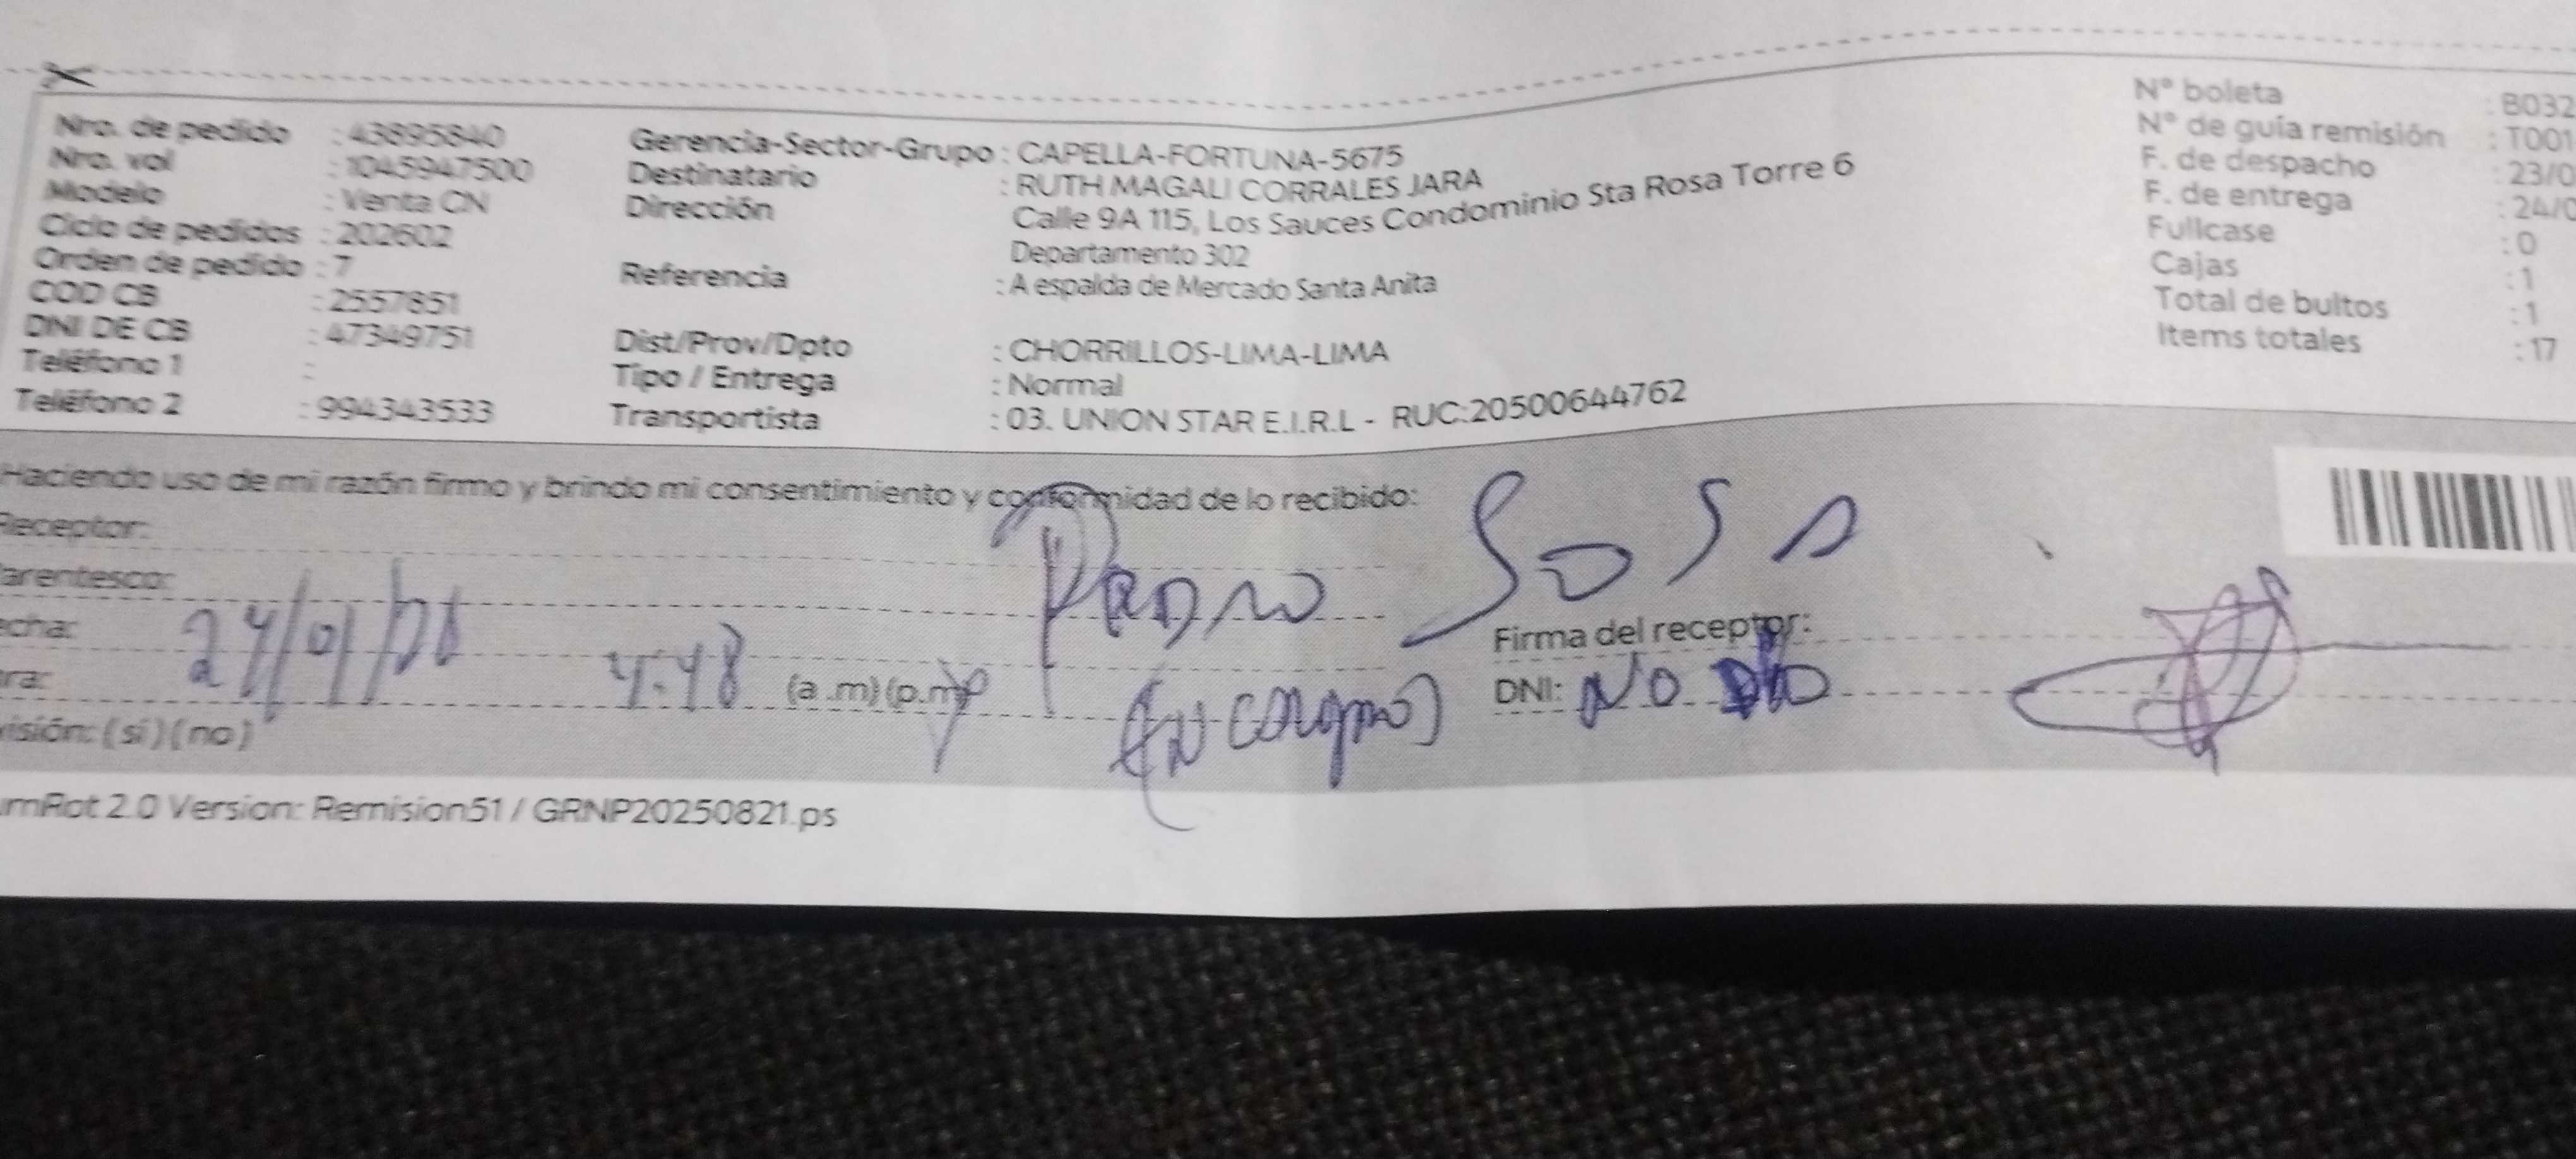 Nro. de pedido : 43895840
Nro. vol : 1045947500
Modelo : Venta CN
Ciclo de pedidos : 202602
Orden de pedido : 7
COD CB : 2557851
DNI DE CB : 47349751
Teléfono 1 :
Teléfono 2 : 994343533
Gerencia-Sector-Grupo : CAPELLA-FORTUNA-5675
Destinatario : RUTH MAGALI CORRALES JARA
Dirección : Calle 9A 115, Los Sauces Condominio Sta Rosa Torre 6
Departamento 302
Referencia : A espalda de Mercado Santa Anita
Dist/Prov/Dpto : CHORRILLOS-LIMA-LIMA
Tipo / Entrega : Normal
Transportista : 03. UNION STAR E.I.R.L - RUC:20500644762
N° boleta : B032
N° de guía remisión : T001
F. de despacho : 23/0
F. de entrega : 24/0
Fullcase : 0
Cajas : 1
Total de bultos : 1
Items totales : 17
Haciendo uso de mi razón firmo y brindo mi consentimiento y conformidad de lo recibido:
Receptor: Pedro Sosa
arentesco:
echa: 24/01/
Firma del receptor:
ra: 4:48 (a.m)(p.m)
DNI: NO
isión: (si)(no)
mRot 2.0 Version: Remision51 / GRNP20250821.ps